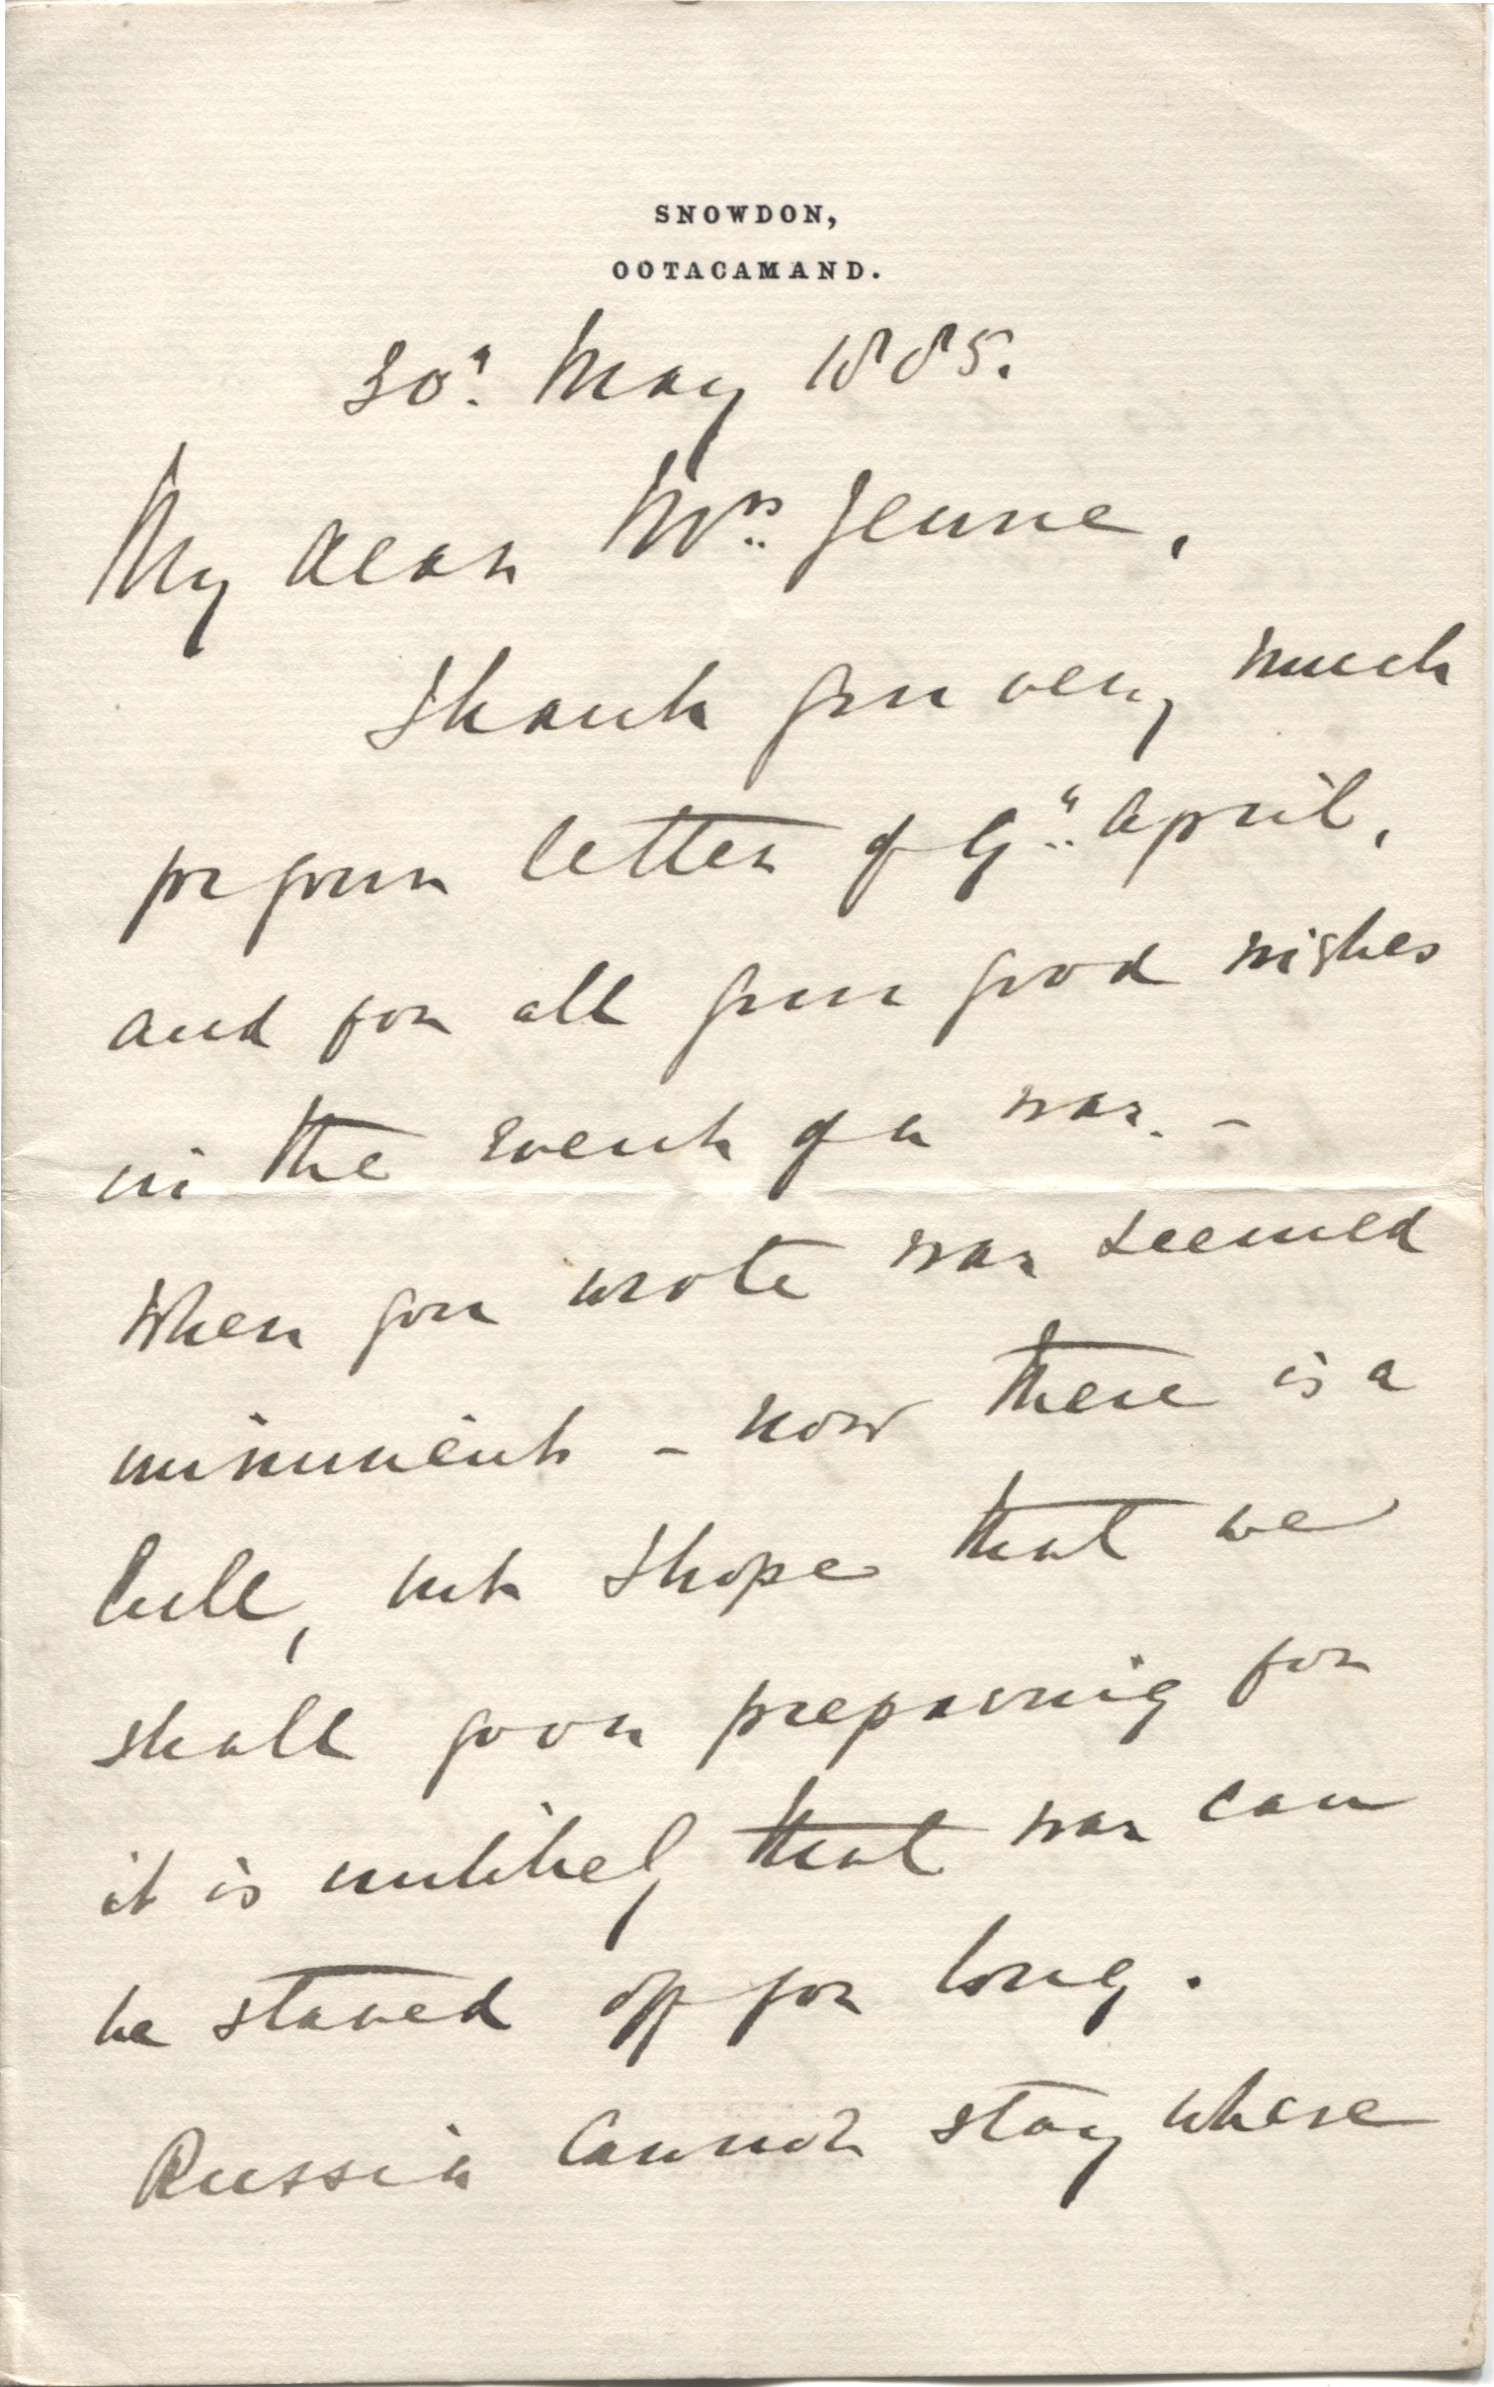 SNOWDON,
OOTACAMAND.
30th May 1885.
My dear Mrs Jeune,
Thank you very much
for your letter of 9th April,
and for all your good wishes
in the event of a war. -
When you wrote war seemed
imminent - now there is a
lull, but I hope that we
shall go on preparing for
it is unlikely that war can
be staved off for long.
Russia cannot stay where